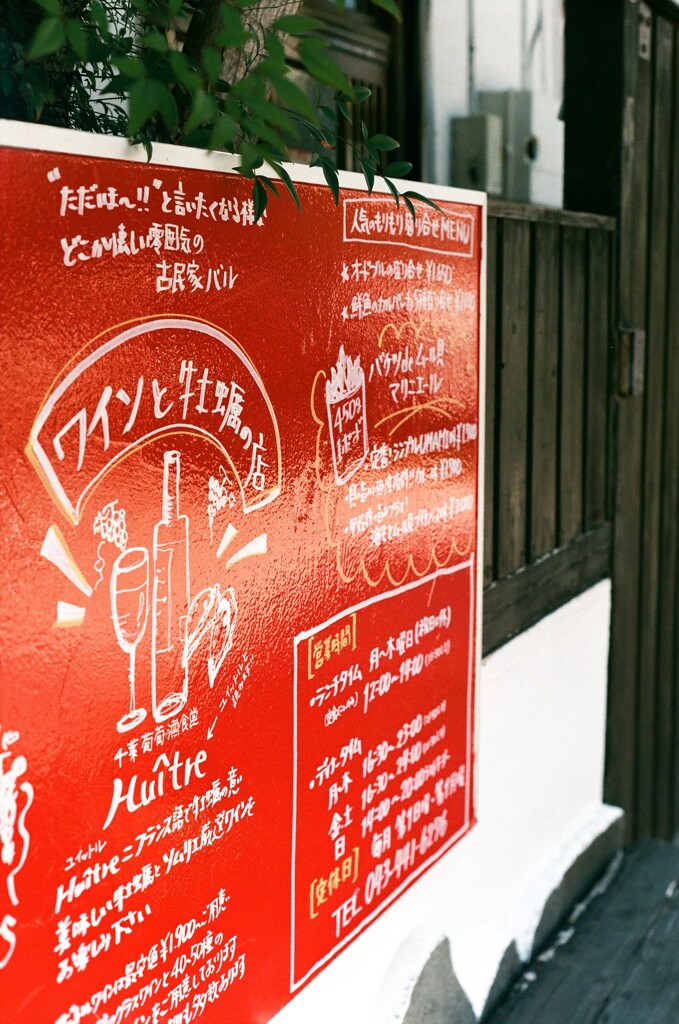 "ただいま〜!!"と言いたくなる様な
どこか懐しい雰囲気の
古民家バル
ワインと牡蠣の店
千葉葡萄酒食堂
Huître
ユイットルと
読みます
ユイットル
Huître=フランス語で牡蠣の意
美味しい牡蠣とソムリエ厳選ワインを
お楽しみ下さい
ワインは最安値¥1,900〜ご用意
グラスワインと40-50種の
インをご用意しております
も多数あります
人気のもりもり盛り合せMENU
★オードブルの盛り合せ
★鮮魚のカルパッチョ
バケツdeムール貝
マリニエール
450g
定番!シンプルUMAMI味¥1,900
[営業時間]
•ランチタイム 月〜木曜日(祝祭日は休)
12:00〜14:00
•ディナータイム
月-木 16:30〜23:00
金土 16:30〜24:00
日 14:00〜20:00
[定休日] 毎月 第1日曜・第1月曜
TEL 043-441-6276